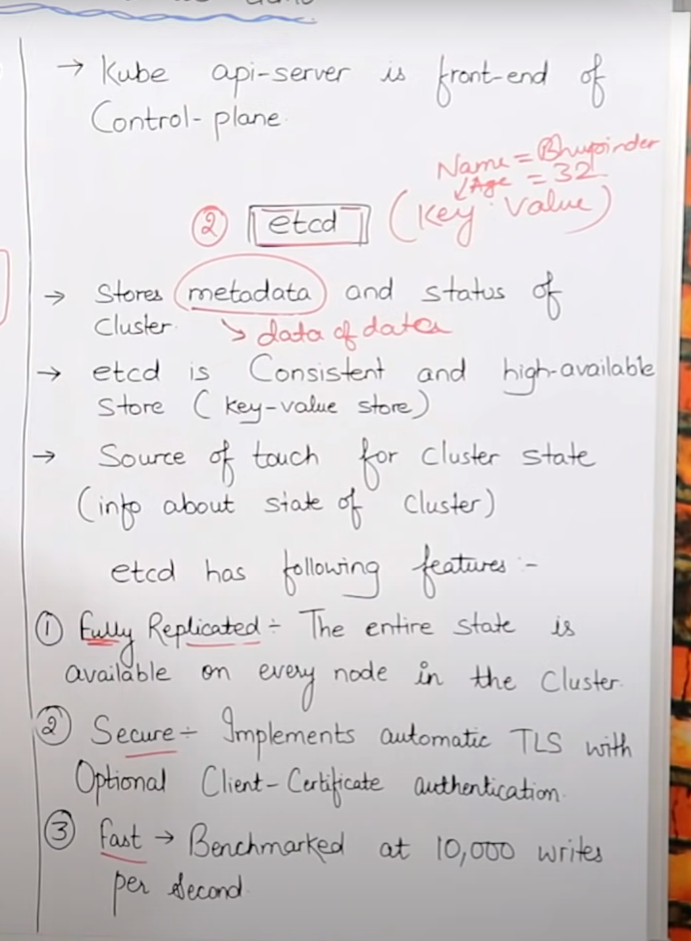 → Kube api-server is front-end of
Control-plane.
Name = Bhupinder
Age = 32
② etcd (Key Value)
→ Stores metadata and status of
Cluster. ↘ data of data
→ etcd is Consistent and high-available
Store (key-value store)
→ Source of touch for cluster state
(info about state of cluster)
etcd has following features :-
① Fully Replicated ÷ The entire state is
available on every node in the Cluster.
② Secure ÷ Implements automatic TLS with
Optional Client-Certificate authentication.
③ fast → Benchmarked at 10,000 writes
per second.